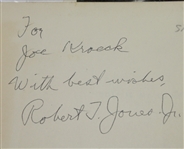 For
Joe Kroesk
With best wishes,
Robert T. Jones. Jr.